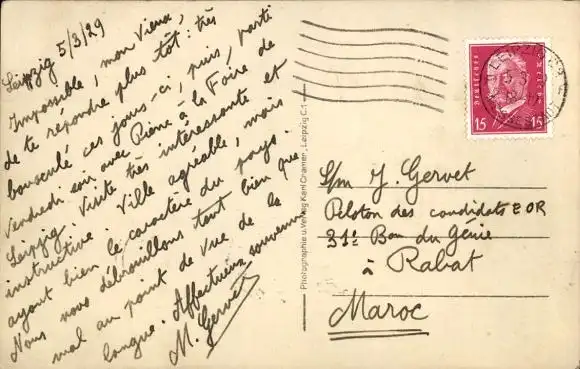 Leipzig 5/3/29
Impossible, mon vieux,
de te répondre plus tôt : très
bousculé ces jours-ci, puis, parti
vendredi soir avec Pierre à la Foire de
Leipzig. Visite très intéressante et
instructive. Ville agréable, mais
ayant bien le caractère du pays.
Nous nous débrouillons tant bien que
mal au point de vue de la
langue. Affectueux souvenirs
M. Gervet
Photographie u. Verlag Karl Cramer, Leipzig C.1
DEUTSCHES REICH
15 15
LEIPZIG
S/m J. Gervet
Peloton des candidats E OR
31e Bon du Génie
à Rabat
Maroc